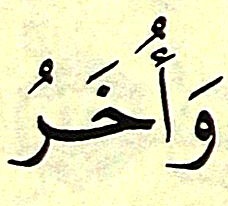 وَأُخَرُ